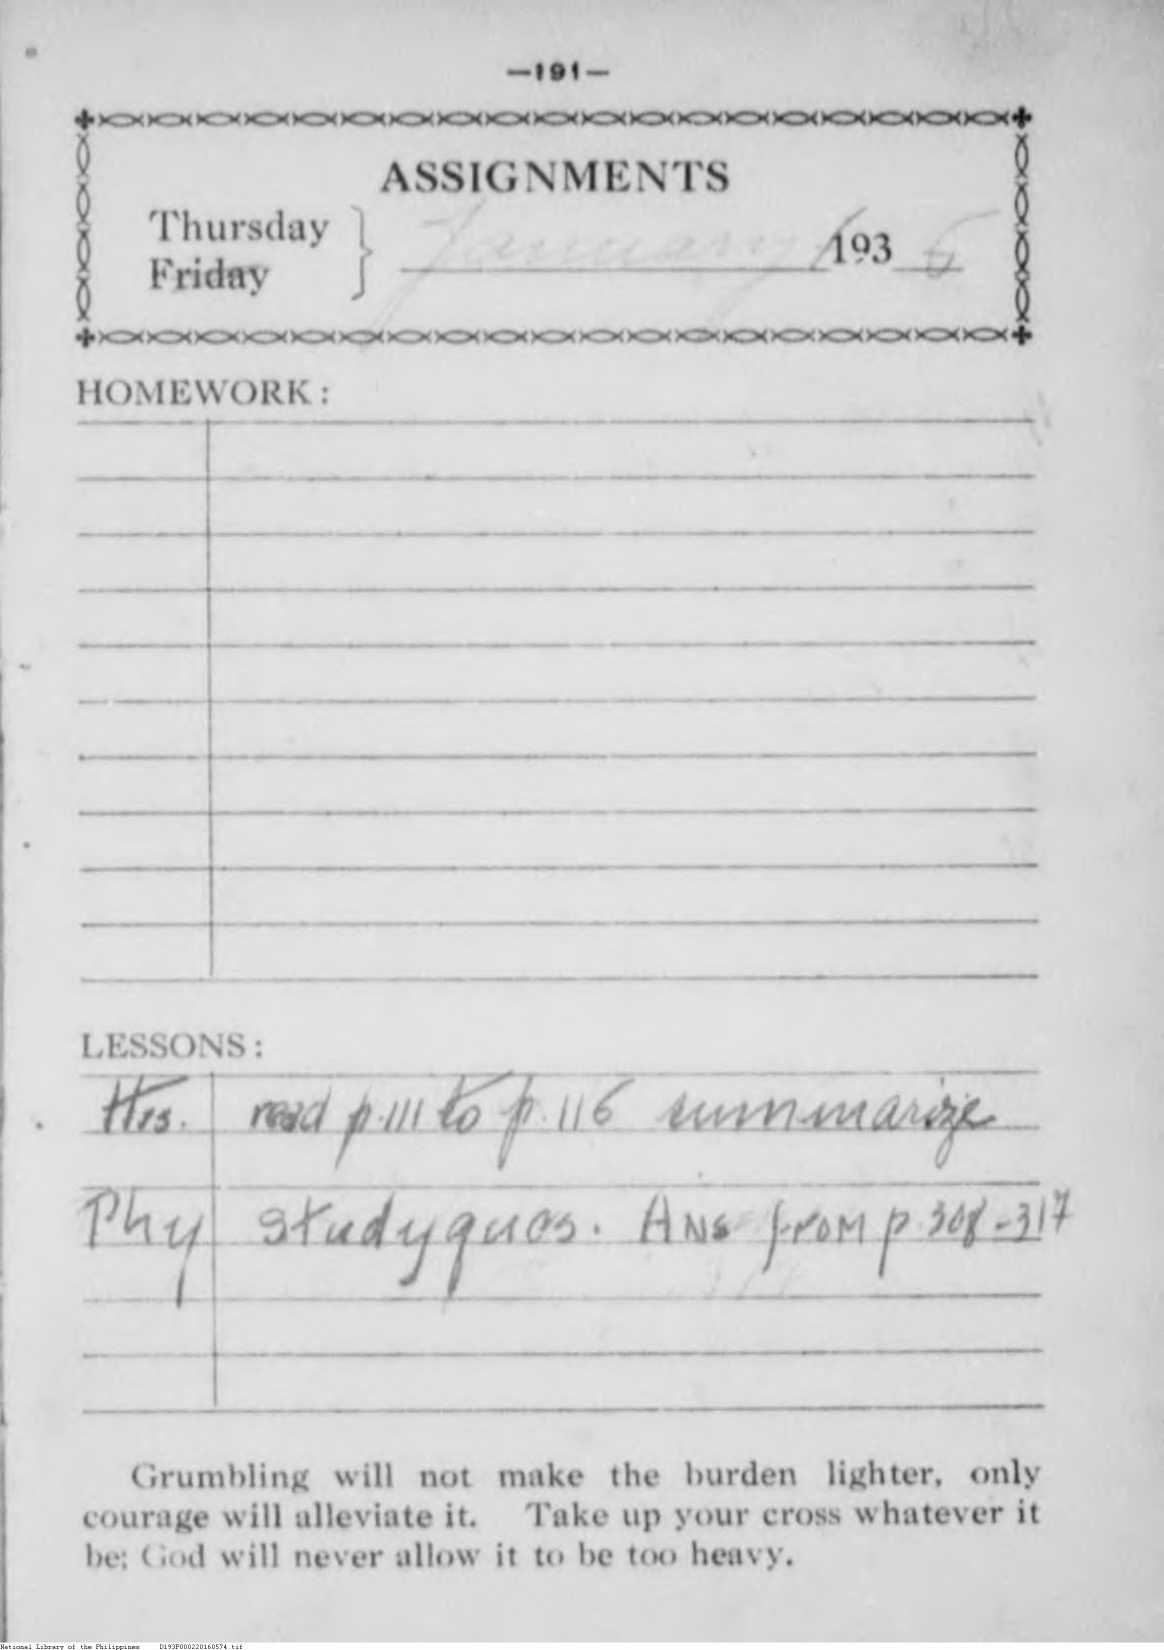 —191—
ASSIGNMENTS
Thursday
Friday
January 193 6
HOMEWORK:
LESSONS:
His. read p.111 to p.116 summarize
Phy study ques. Ans from p.308-317
Grumbling will not make the burden lighter, only
courage will alleviate it. Take up your cross whatever it
be; God will never allow it to be too heavy.
National Library of the Philippines D193P000220160574.tif